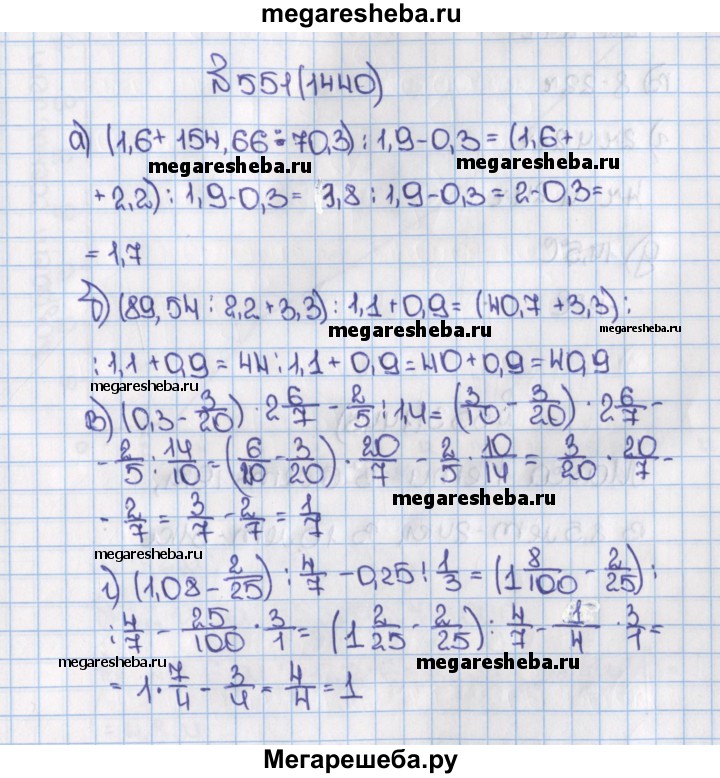 megaresheba.ru
№551(1440)
а) (1,6 + 154,66 : 70,3) : 1,9 - 0,3 = (1,6 +
megaresheba.ru megaresheba.ru
+ 2,2) : 1,9 - 0,3 = 3,8 : 1,9 - 0,3 = 2 - 0,3 =
= 1,7
б) (89,54 : 2,2 + 3,3) : 1,1 + 0,9 = (40,7 + 3,3) :
megaresheba.ru megaresheba.ru
: 1,1 + 0,9 = 44 : 1,1 + 0,9 = 40 + 0,9 = 40,9
megaresheba.ru
в) (0,3 - 3/20) · 2 6/7 - 2/5 : 1,4 = (3/10 - 3/20) · 2 6/7 -
- 2/5 : 14/10 = (6/20 - 3/20) · 20/7 - 2/5 · 10/14 = 3/20 · 20/7 -
megaresheba.ru
- 2/7 = 3/7 - 2/7 = 1/7
megaresheba.ru
г) (1,08 - 2/25) : 4/7 - 0,25 : 1/3 = (1 8/100 - 2/25) :
: 4/7 - 25/100 · 3/1 = (1 2/25 - 2/25) : 4/7 - 1/4 · 3/1 =
megaresheba.ru megaresheba.ru
= 1 · 7/4 - 3/4 = 4/4 = 1
Мегарешеба.ру